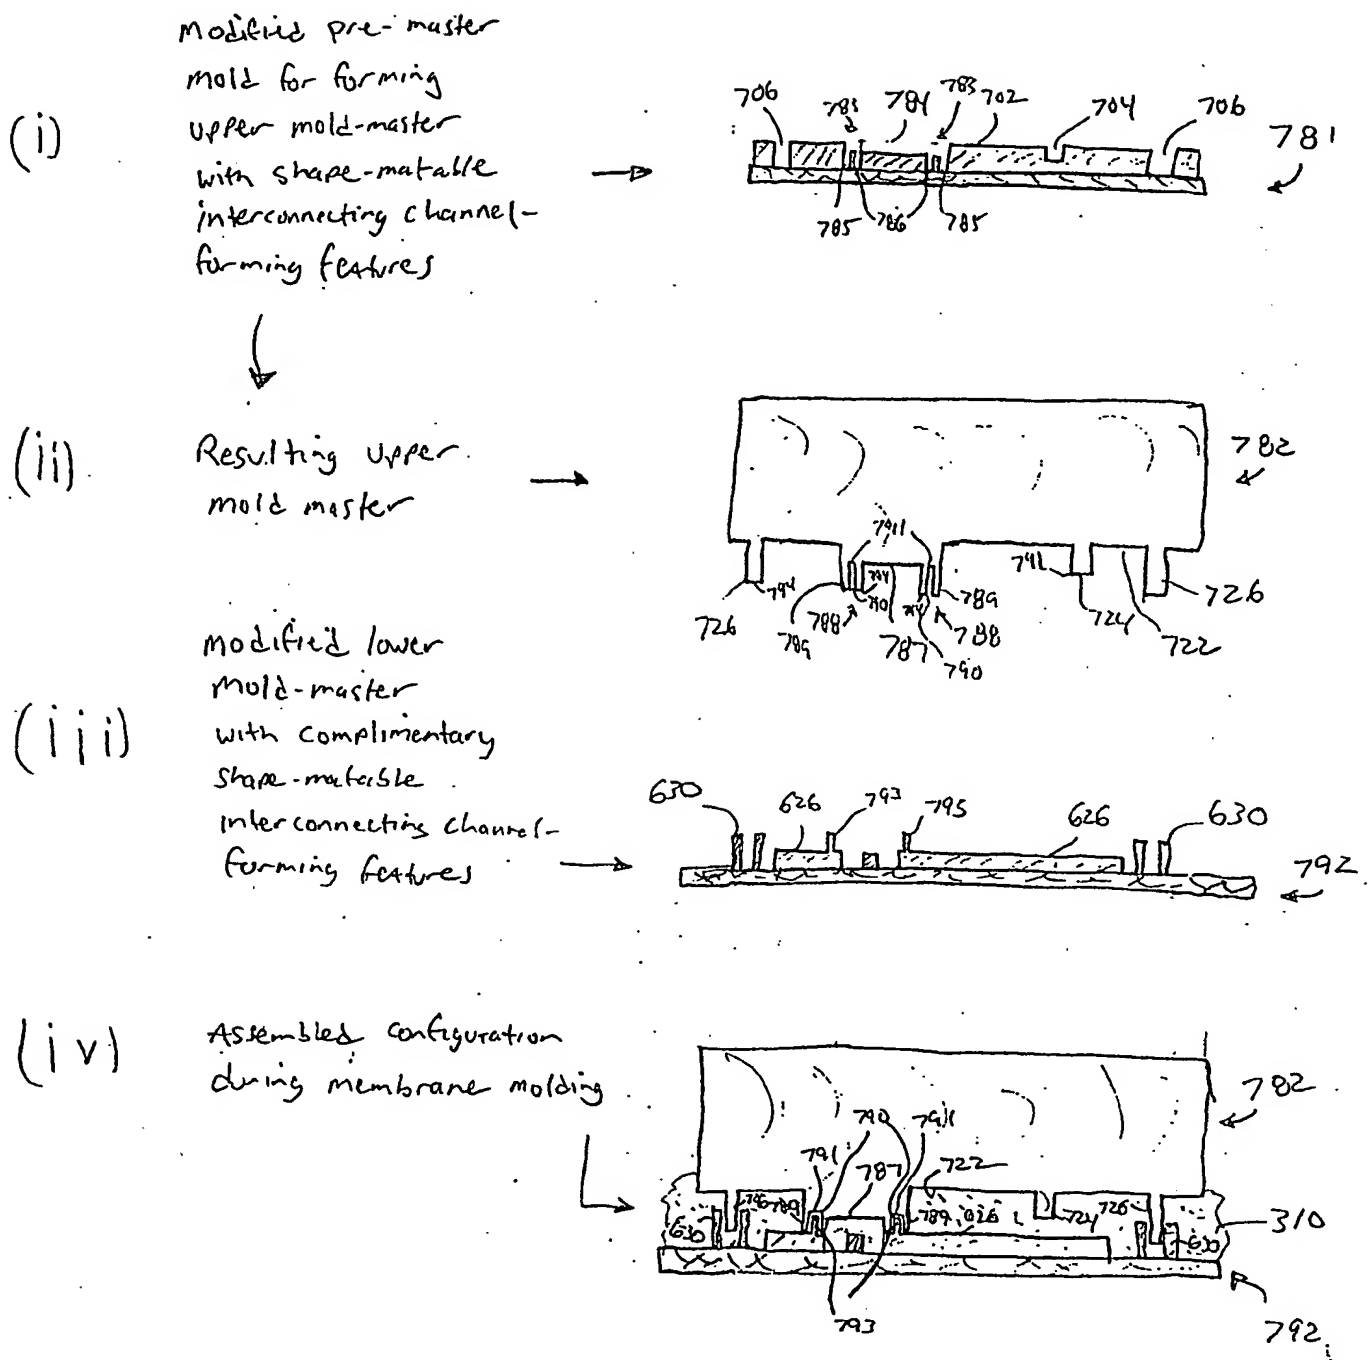 (i)
Modified pre-master
mold for forming
upper mold-master
with shape-matable
interconnecting channel-
forming features
706 783 784 783 702 704 706
781
785 786 785
(ii)
Resulting upper
mold master
782
791
794 794 741
726 789 788 790 787 790 788 789 724 722 726
(iii)
modified lower
mold-master
with complimentary
shape-matable
interconnecting channel-
forming features
630 626 793 795 626 630
792
(iv)
Assembled configuration
during membrane molding
782
790 791
791 787 722
789 789 626 724 726
630 630 310
793
792